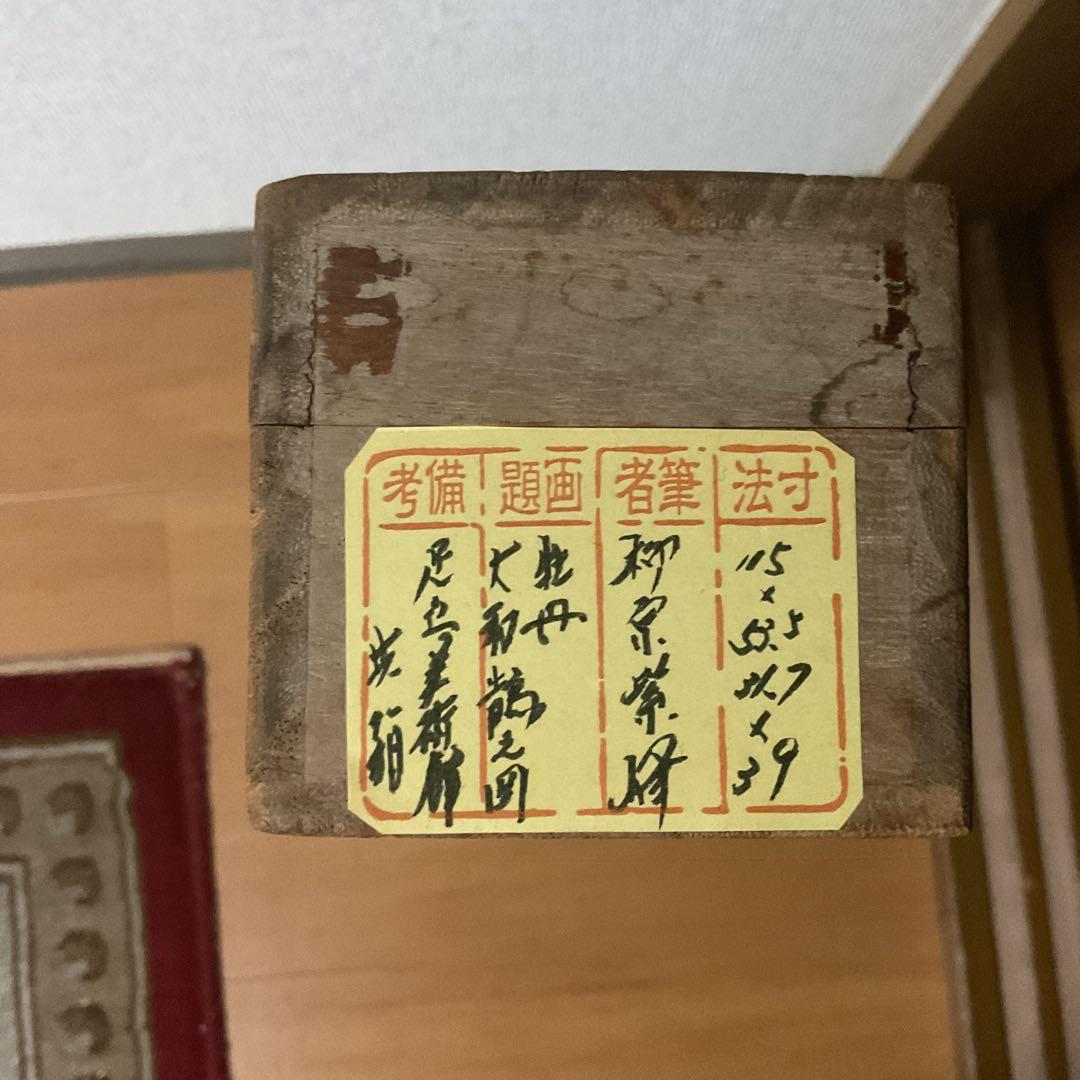 寸法
115
×
53.5
筆者
柳宗紫峰
画題
牡丹
大和鶴之図
備考
足立美術館
共箱